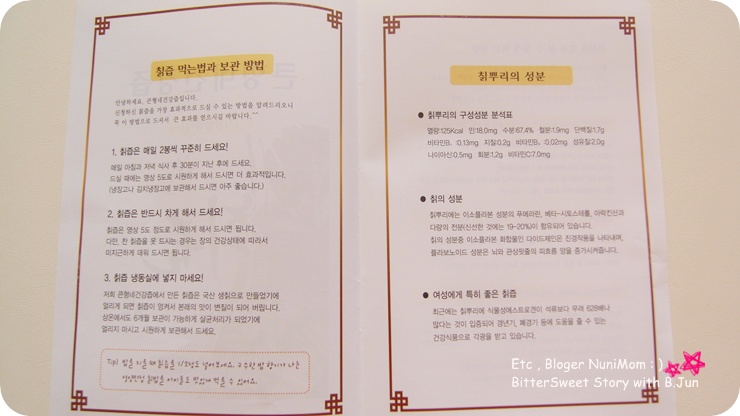 칡즙 먹는법과 보관 방법
안녕하세요, 큰형네건강즙입니다.
신청하신 칡즙을 가장 효과적으로 드실 수 있는 방법을 알려드리오니
꼭 이 방법으로 드셔서 큰 효과를 얻으시길 바랍니다.^^
1. 칡즙은 매일 2봉씩 꾸준히 드세요!
매일 아침과 저녁 식사 후 30분이 지난 후에 드세요.
드실 때에는 영상 5도로 시원하게 해서 드시면 더 효과적입니다.
(냉장고나 김치냉장고에 보관해서 드시면 아주 좋습니다.)
2. 칡즙은 반드시 차게 해서 드세요!
칡즙은 영상 5도 정도로 시원하게 해서 드시면 됩니다.
다만, 찬 칡즙을 못 드시는 경우는 장의 건강상태에 따라서
미지근하게 데워 드시면 됩니다.
3. 칡즙 냉동실에 넣지 마세요!
저희 큰형네건강즙에서 만든 칡즙은 국산 생칡으로 만들었기에
얼리게 되면 칡즙이 엉켜서 본래의 맛이 변질이 되어 버립니다.
상온에서도 6개월 보관이 가능하게 살균처리가 되었기에
얼리지 마시고 시원하게 보관해서 드세요.
Tip! 밥을 지을 때 칡즙을 1/3정도 넣어보세요. 구수한 밥 향기가 나는
영양만점 칡밥을 아이들도 맛있게 먹을 수 있어요.
칡뿌리의 성분
● 칡뿌리의 구성성분 분석표
열량:125Kcal 인:18.0mg 수분:67.4% 철분:1.9mg 단백질:1.7g
비타민B₁ :0.13mg 지질:0.2g 비타민B₂ :0.02mg 섬유질:2.0g
나이아신:0.5mg 회분:1.2g 비타민C:7.0mg
● 칡의 성분
칡뿌리에는 이소플라본 성분의 푸에라린, 베타-시토스테롤, 아락킨산과
다량의 전분(신선한 것에는 19~20%)이 함유되어 있습니다.
칡의 성분중 이소플라본 화합물인 다이드제인은 진경작용을 나타내며,
플라보노이드 성분은 뇌와 관상핏줄의 피흐름 양을 증가시켜줍니다.
● 여성에게 특히 좋은 칡즙
최근에는 칡뿌리에 식물성에스트로겐이 석류보다 무려 628배나
많다는 것이 입증되어 갱년기, 폐경기 등에 도움을 줄 수 있는
건강식품으로 각광을 받고 있습니다.
Etc , Bloger NuniMom : )
BitterSweet Story with B.Jun